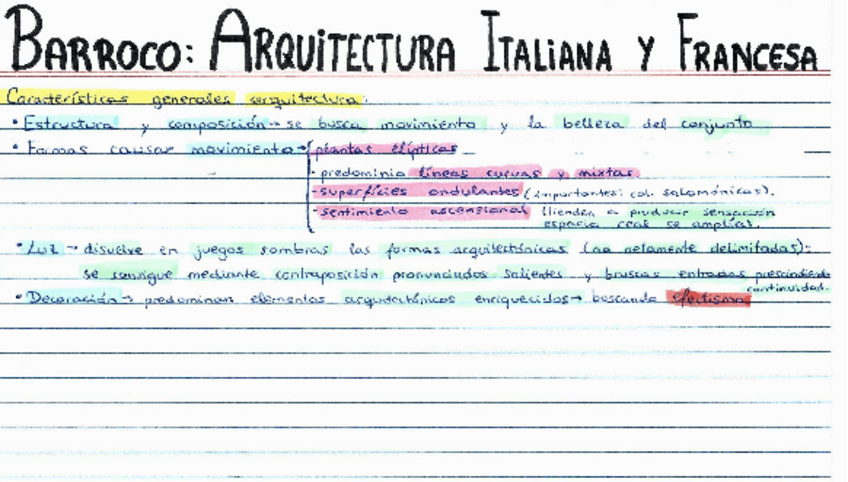 BARROCO: ARQUITECTURA ITALIANA Y FRANCESA
Características generales arquitectura:
• Estructura y composición → se busca movimiento y la belleza del conjunto
• Formas causar movimiento → { plantas elípticas
- predominio líneas curvas y mixtas
- superficies ondulantes (importantes: col. salomónicas).
- sentimiento ascensional (tienden a producir sensación
espacio real se amplía).
• Luz → disuelve en juegos sombras las formas arquitectónicas (no netamente delimitadas):
se consigue mediante contraposición pronunciados salientes y bruscas entradas prescindiendo
continuidad.
• Decoración → predominan elementos arquitectónicos enriquecidos → buscando efectismo